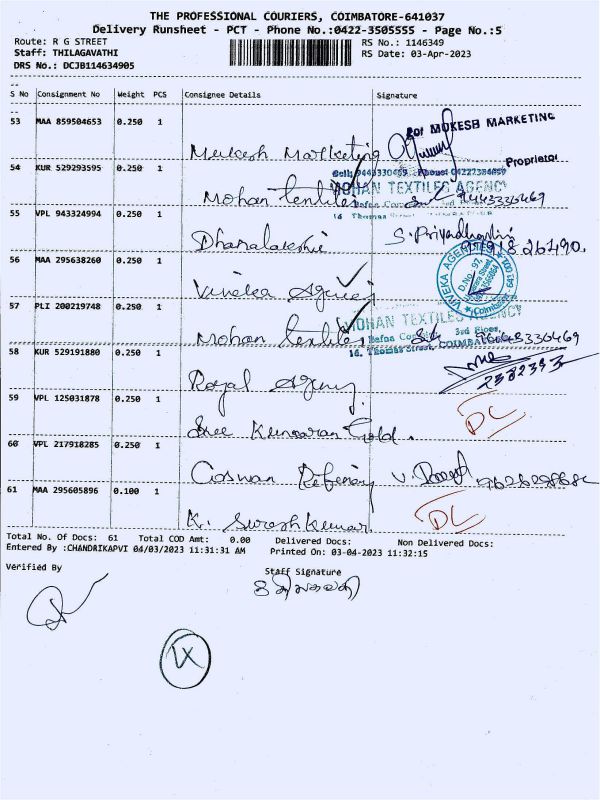 THE PROFESSIONAL COURIERS, COIMBATORE-641037
Delivery Runsheet - PCT - Phone No.:0422-3505555 - Page No.:5
Route: R G STREET RS No.: 1146349
Staff: THILAGAVATHI RS Date: 03-Apr-2023
DRS No.: DCJB114634905
S No Consignment No Weight PCS Consignee Details Signature
53 MAA 859504653 0.250 1
Mukesh Marketing for MUKESH MARKETING
Proprietor
54 KUR 529293595 0.250 1
Mohan textiles MOHAN TEXTILES AGENCY
55 VPL 943324994 0.250 1
Dhanalakshmi S. Priyadharshini
56 MAA 295638260 0.250 1
Viveka Agencies VIVEKA AGENCY
57 PLI 200219748 0.250 1
Mohan textiles MOHAN TEXTILES AGENCY
3rd Floor,
16, Thomas Street, COIMBATORE
58 KUR 529191880 0.250 1
Royal Agency
59 VPL 125031878 0.250 1
Sree Kumaran Gold. DL
60 VPL 217918285 0.250 1
Coswan Refinery
61 MAA 295605896 0.100 1
K. Sureshkumar DL
Total No. Of Docs: 61 Total COD Amt: 0.00 Delivered Docs: Non Delivered Docs:
Entered By :CHANDRIKAPVI 04/03/2023 11:31:31 AM Printed On: 03-04-2023 11:32:15
Verified By Staff Signature
IX